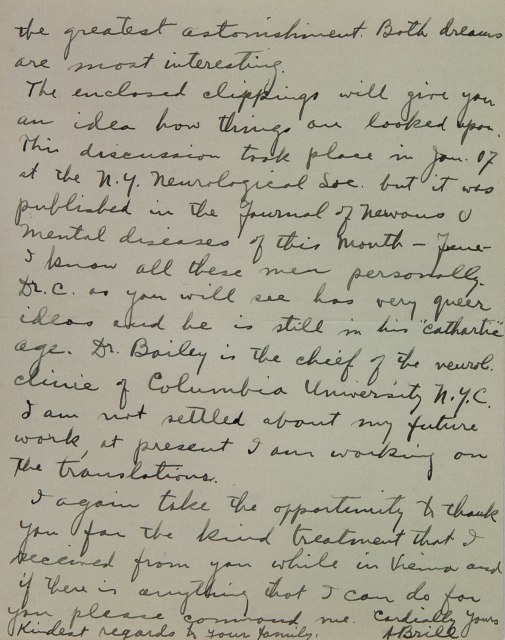 the greatest astonishment. Both dreams
are most interesting.
The enclosed clippings will give you
an idea how things are looked upon.
This discussion took place in Jan. 07
at the N.Y. Neurological Soc. but it was
published in the Journal of Nervous &
Mental diseases of this month – June–
I know all these men personally.
Dr. C. as you will see has very queer
ideas and he is still in his "cathartic"
age. Dr. Bailey is the chief of the neurol.
clinic of Columbia University N.Y.C.
I am not settled about my future
work, at present I am working on
the translations.
I again take the opportunity to thank
you for the kind treatment that I
received from you while in Vienna and
if there is anything that I can do for
you please command me. Cordially yours
Kindest regards to your family. ABrill